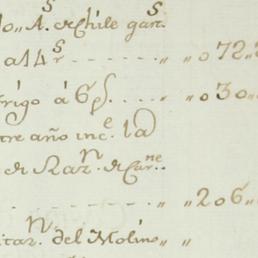 lo,, A.s de Chile gan.s
a 14 s r . . . . ,, ,, o 72,,
rigo á 6 p.s . . . . ,, ,, o 3 o,,
tre año inc.e la
de Raz.n de Car.ne
. . . . . . . . ,, ,, 2 o 6,,
itar.n del Molino,, ,,